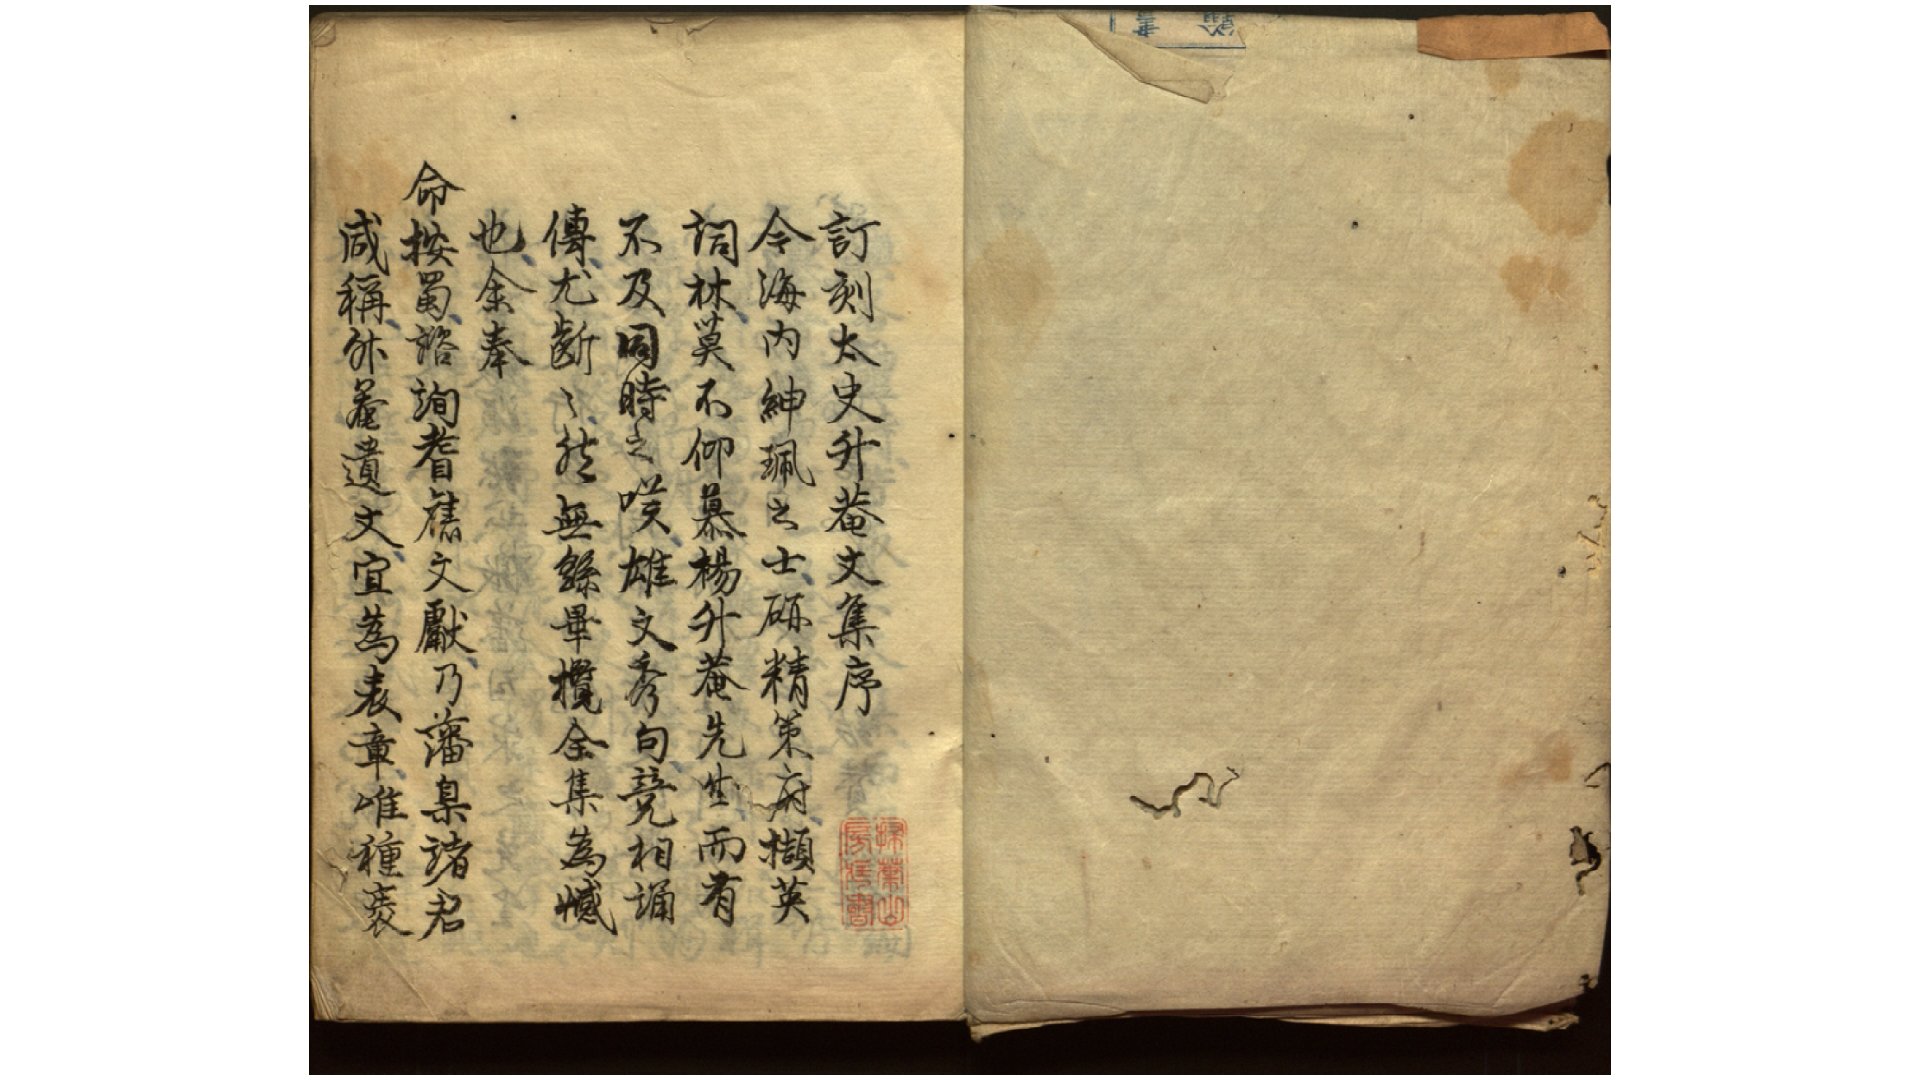 訂刻太史升菴文集序
今海內紳珮之士砺精策府擷英
詞林莫不仰慕楊升菴先生而有
不及同時之嘆雄文秀句競相誦
傳尤断〻然無繇畢攬全集為憾
也余奉
命按蜀諮詢耆舊文獻乃藩臬諸君
咸稱升菴遺文宜為表章唯種袠
掃葉山房舊書